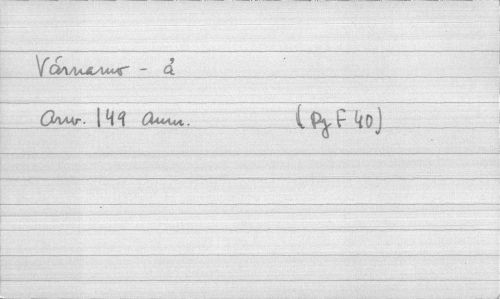 Värnamo - å
Arw. 149 Anm. (Pg F 40)